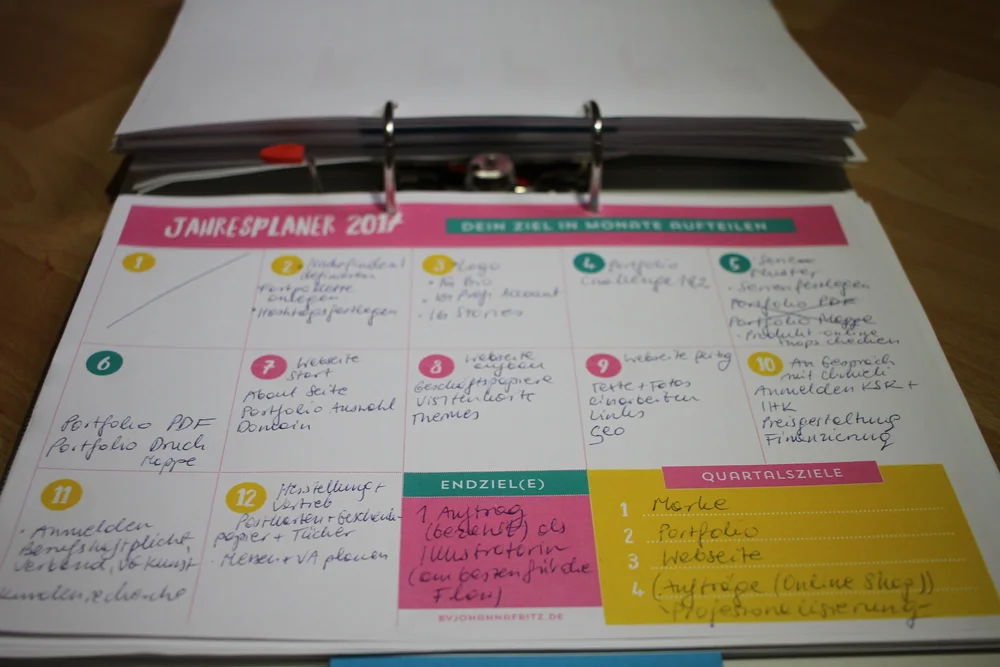 JAHRESPLANER 2017
DEIN ZIEL IN MONATE AUFTEILEN
1
2
definieren
anlegen
3 Logo
• An Bio
Account
• IG Stories
4 Portfolio
Challenge 1&2
5
Muster
• Serien festlegen
Portfolio PDF
Portfolio Mappe
• Produkt online
shops checken
6
Portfolio PDF
Portfolio Druck
Mappe
7 Webseite
Start
About Seite
Portfolio Auswahl
Domain
8 Webseite
Geschäftspapiere
Visitenkarte
Themes
9 Webseite fertig
Texte + Fotos
einarbeiten
Links
Geo
10
Anmelden KSK +
IHK
Preisgestaltung
Finanzierung
11
• Anmelden
Berufshaftpflicht
Verband, VG Kunst
12 Herstellung +
Vertrieb
Postkarten + Geschenk-
papier + Tücher
• Messen + VA planen
ENDZIEL(E)
1 Auftrag
(bezahlt) als
Illustratorin
(am besten für die
Flow)
BYJOHANNAFRITZ.DE
QUARTALSZIELE
1 Marke
2 Portfolio
3 Webseite
4 (Aufträge (Online Shop))